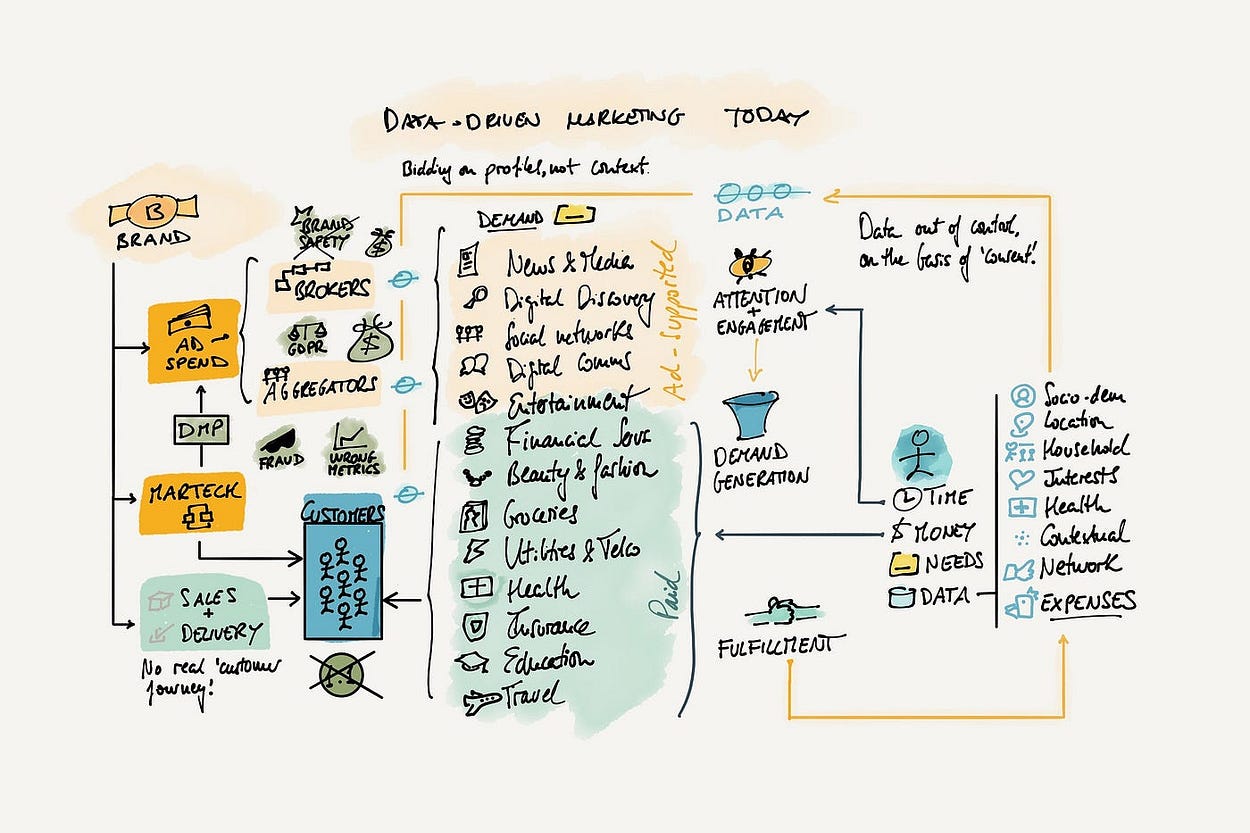 DATA-DRIVEN MARKETING TODAY
Bidding on profiles, not context.
B
BRAND
BRAND
SAFETY
$
BROKERS
AD
SPEND
GDPR
$
AGGREGATORS
DMP
FRAUD
WRONG
METRICS
MARTECH
CUSTOMERS
SALES
+
DELIVERY
No real 'customer
journey!
DEMAND
News & Media
Digital Discovery
Social networks
Digital Comms
Entertainment
Ad-Supported
Financial Serv
Beauty & fashion
Groceries
Utilities & Telco
Health
Insurance
Education
Travel
Paid
DATA
ATTENTION
+
ENGAGEMENT
DEMAND
GENERATION
FULFILLMENT
Data out of control,
on the basis of 'consent'.
TIME
$ MONEY
NEEDS
DATA
Socio-dem
Location
Household
Interests
Health
Contextual
Network
EXPENSES